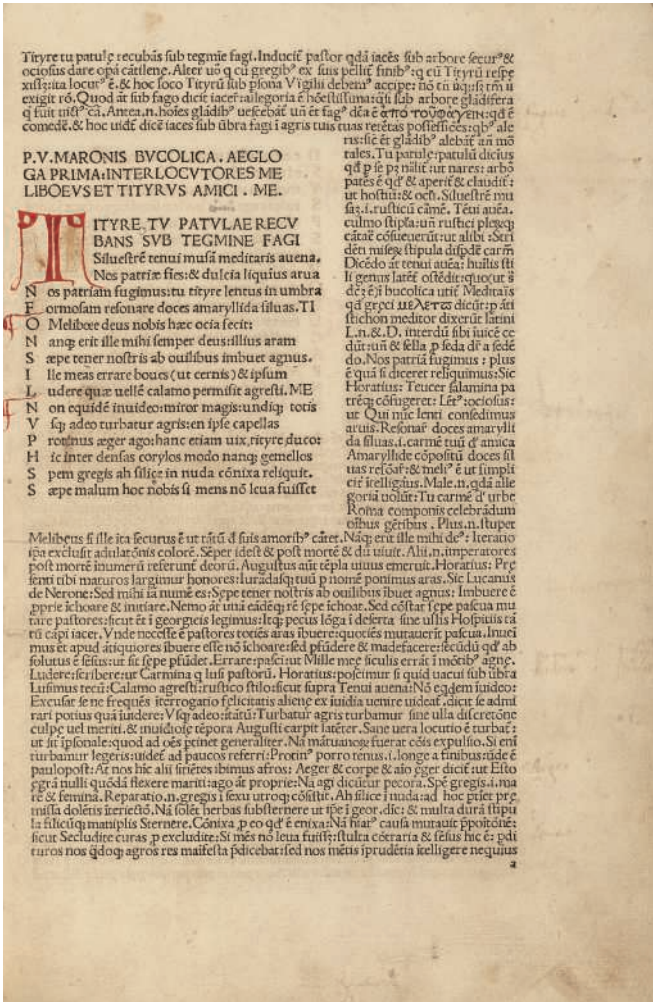 Tityre tu patulę recubãs sub tegmĩe fagi. Inducit͂ pastor qdã iacẽs sub arbore secur⁹ &
ociosus dare opã cãtilenę. Alter uõ q cũ gregib⁹ ex suis pellit͂ finib⁹: q cũ Tityrũ
exigit rõ. Quod aũt sub fago dicit iacer̃: allegoria ẽ
q fuit Antea.n. hoĩes glãdib⁹ uescebãt͂ uñ et fag⁹ dc̃a ẽ ἀπὸ τοῦ φαγεῖν: qd ẽ
comedẽ. & hoc uidet͂ dicẽ iaces sub ũbra fagi ĩ agris tuis tuas retẽtas possessiões: qb⁹ ale
P.V. MARONIS BVCOLICA. AEGLO
GA PRIMA: INTERLOCVTORES ME
LIBOEVS ET TITYRVS AMICI. ME.
TITYRE. TV PATVLAE RECV
BANS SVB TEGMINE FAGI
Siluestrẽ tenui musã meditaris auena.
Nos patriæ fies: & dulcia liquius arua
N os patriam fugimus: tu tityre lentus in umbra
F ormosam resonare doces amaryllida siluas. TI
O Meliboee deus nobis hæc ocia fecit:
N anq; erit ille mihi semper deus: illius aram
S æpe tener nostris ab ouilibus imbuet agnus.
I lle meas errare boues (ut cernis) & ipsum
L udere quæ uellẽ calamo permisit agresti. ME
N on equidẽ inuideo: miror magis: undiq; totis
V sq; adeo turbatur agris: en ipse capellas
P rotinus æger ago: hanc etiam uix, tityre, duco:
H ic inter densas corylos modo nanq; gemellos
S pem gregis ah silice in nuda cõnixa reliquit.
S æpe malum hoc nobis si mens nõ leua fuisset
ris: sic et glãdib⁹ alebãt͂ añ mõ
tales. Tu patulę: patulũ dicius
pates ẽ qd⁹ & aperit͂ & claudit͂:
ut hostiũ: & oc̃l͂i. Siluestrẽ mu
sã: .i. rusticũ cãmẽ. Tẽui auẽa.
culmo stipla: uñ rustici plerq;
cãtãe cõsueuerũt: ut alibi: Stri
dẽti miserę stipula dispdẽ carm̃
Dicẽdo aũt tenui auẽa: huilis sti
li genus latẽt͂ ostẽdit: quo
ĩ bucolica utit͂. Meditaĩs
qd gręci μελετω dicũt: p ãti
stichon meditor dixerũt latini
L.n. & D. interdũ sibi ĩuicẽ ce
dũt: uñ & sella p seda dr̃ a sedẽ
do. Nos patriã fugimus: plus
ẽ quã si diceret reliquimus: Sic
Horatius: Teucer salamina pa
trẽq; cõfugeret: Lẽt⁹: ociosus:
ut Qui nũc lenti consedimus
aruis. Resonar̃ doces amarylli
da siluas: i. carmẽ tuũ d⁹ amica
Amaryllide cõpositũ doces sil
uas resõar̃: & meli⁹ ẽ ut simpli
cit͂ ĩtelligãus. Male.n. qdã alle
goriã uolũt: Tu carmẽ d⁹ urbe
Roma componis celebrãdum
oĩbus gẽtibus. Plus.n. stupet
Melibeus si ille ita securus ẽ ut tãtũ d⁹ suis amorib⁹ cãtet. Nãq; erit ille mihi de⁹: Iteratio
ip̃a exclusit adulatõnis colorẽ. Sẽper idest & post mortẽ & dũ uiuit. Alii.n. imperatores
post mortẽ ĩnumerũ referunt͂ deorũ. Augustus aũt tẽpla uiuus emeruit. Horatius: Prę
senti tibi maturos largimur honores: Iurãdasq; tuũ p nomẽ ponimus aras. Sic Lucanus
de Nerone: Sed mihi iã numẽ es: Sępe tener nostris ab ouilibus ĩbuet agnus: Imbuere ẽ
pprie ĩchoare & initiare. Nemo aũt unã eãdẽq; rẽ sępe ĩchoat. Sed cõstat sępe pascua mu
tare pastores: sicut ẽt ĩ georgicis legimus: Itq; pecus lõga ĩ deserta sine ullis Hospitiis tã
tũ cãpi iacet. Vnde necesse ẽ pastores totiẽs aras ĩbuere: quotiẽs mutauerit͂ pascua. Inuei
mus et apud ãtiquiores ĩbuere esse nõ ĩchoare: sed pfũdere & madefacere: secũdũ qd⁹ ab
solutus ẽ sẽsus: ut sit sępe pfũdet. Errare: pasci: ut Mille meę siculis errãt ĩ mõtib⁹ agnę.
Ludere: scribere: ut Carmina q lusi pastorũ. Horatius: poscimur si quid uacui sub ũbra
Lusimus tecũ: Calamo agresti: rustico stilo: sicut supra Tenui auena: Nõ eqdem ĩuideo:
Excusat se ne freques ĩterrogatio felicitatis alienę ex ĩuidia uenire uideat͂. dicit se admi
rari potius quã ĩuidere: Vsq; adeo: ĩtãtũ: Turbatur agris turbamur sine ulla discretõne
culpę uel meriti. & ĩuidiose tẽpora Augusti carpit latẽter. Sane uera lectio ẽ turbat͂:
ut sit ĩpsonale: quod ad oẽs ptinet generaliter. Nã mãtuanoꝝ fuerat cõis expulsio. Si eni
turbamur legeris: uidet͂ ad paucos referri: Protin⁹ porro tenus. i. longe a finibus: ũde ẽ
paulopost: At nos hic alii sitiẽtes ibimus afros: Aeger & corpe & aio ęger dicit͂: ut Esto
ęgrã nulli quõdã flexere mariti: ago aũt proprie: Nã agi dicũtur pecora. Spẽ gregis .i. ma
rẽ & feminã. Reparatio.n. gregis ĩ sexu utroq; cõsistit. Ah silice ĩ nuda: ad hoc ptiet prę
missa dolẽtis ĩteriectõ. Nã solẽt herbas substernere ut ip̃e ĩ geor. dic͂: & multa durã stipu
la filicũq; maniplis Sternere. Cõnixa p eo qd⁹ ẽ enixa: Nã hiat⁹ causa mutauit ppositõnẽ:
sicut Secludite curas p excludite: Si mẽs nõ leua fuisset: stulta cõtraria & sẽsus hic ẽ: pdi
turos nos qdoq; agros res maĩfesta pdicebat: sed nos mẽtis ĩprudẽtia ĩtelligere nequius
a